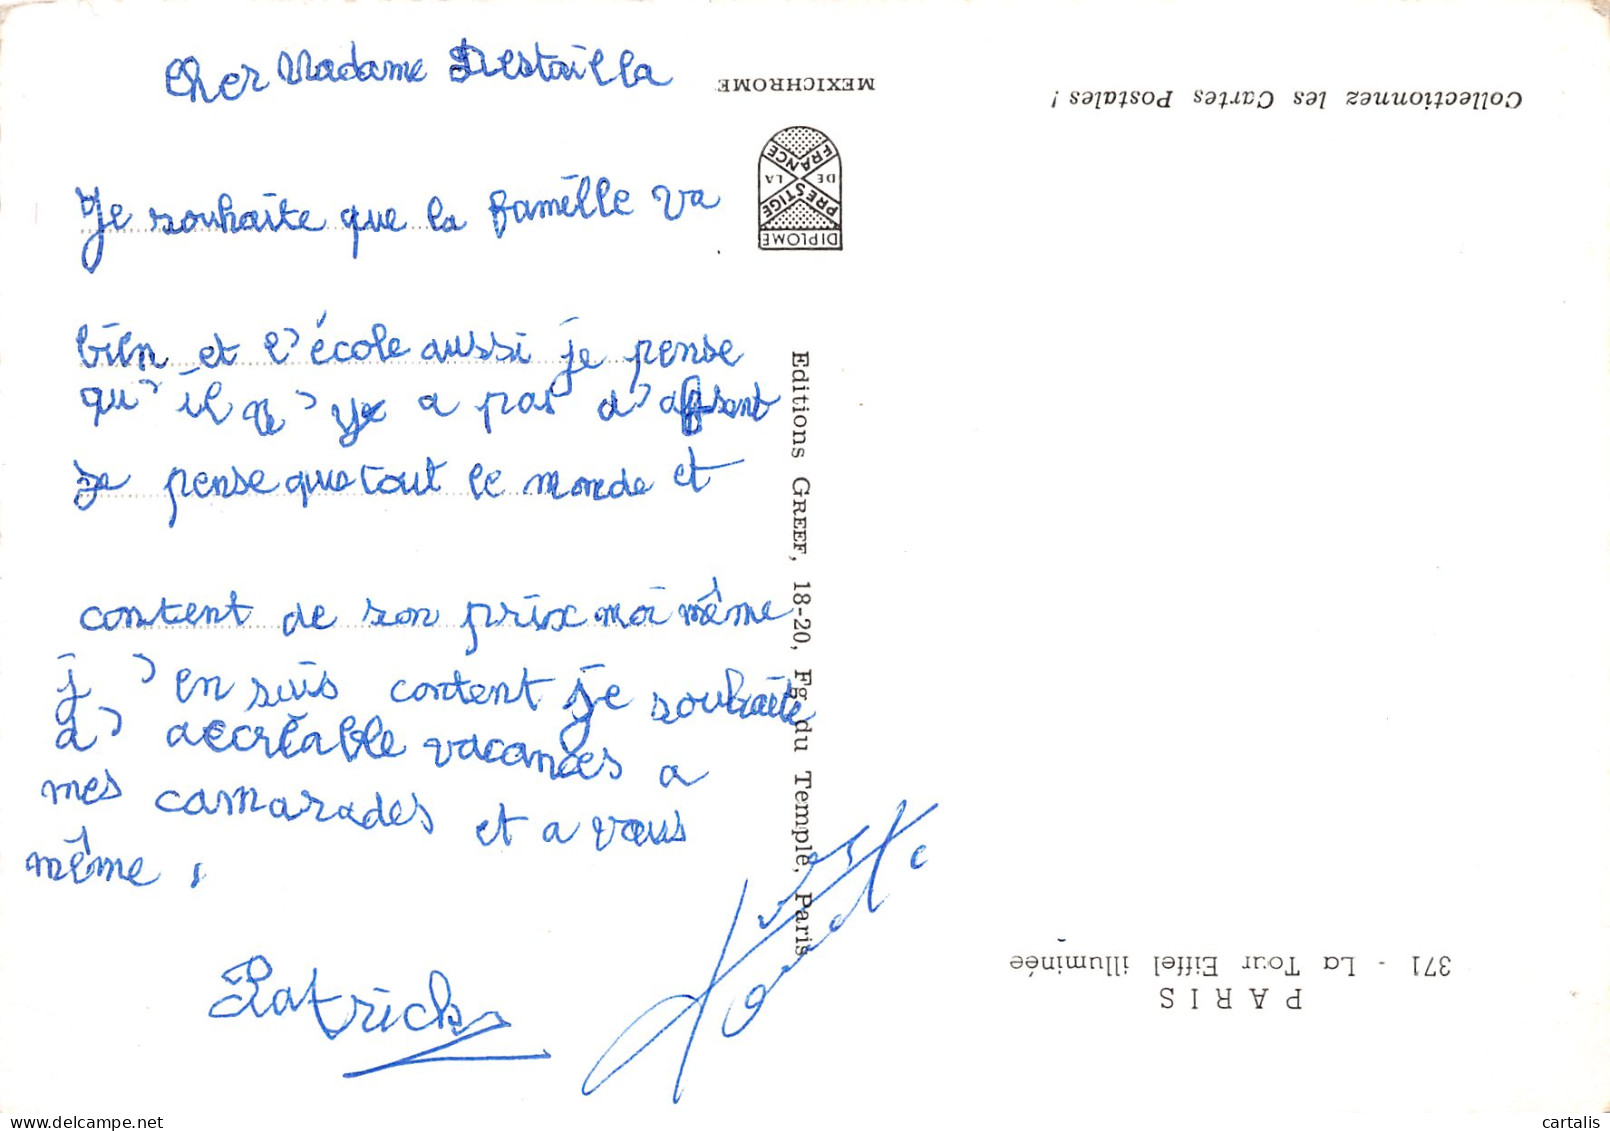 Cher Madame Destailla
Je souhaite que la famille va
bien et l'école aussi je pense
qu'il n'y a pas d'absent
je pense que tout le monde et
content de son prix moi même
j'en suis content je souhaite
d'accréable vacances a
mes camarades et a vous
même.
Patrick
MEXICHROME
DIPLOME
PRESTIGE
DE LA
FRANCE
Editions GREEF, 18-20, Fg du Temple, Paris
Collectionnez les Cartes Postales !
PARIS
371 - La Tour Eiffel illuminée
delcampe.net
cartalis